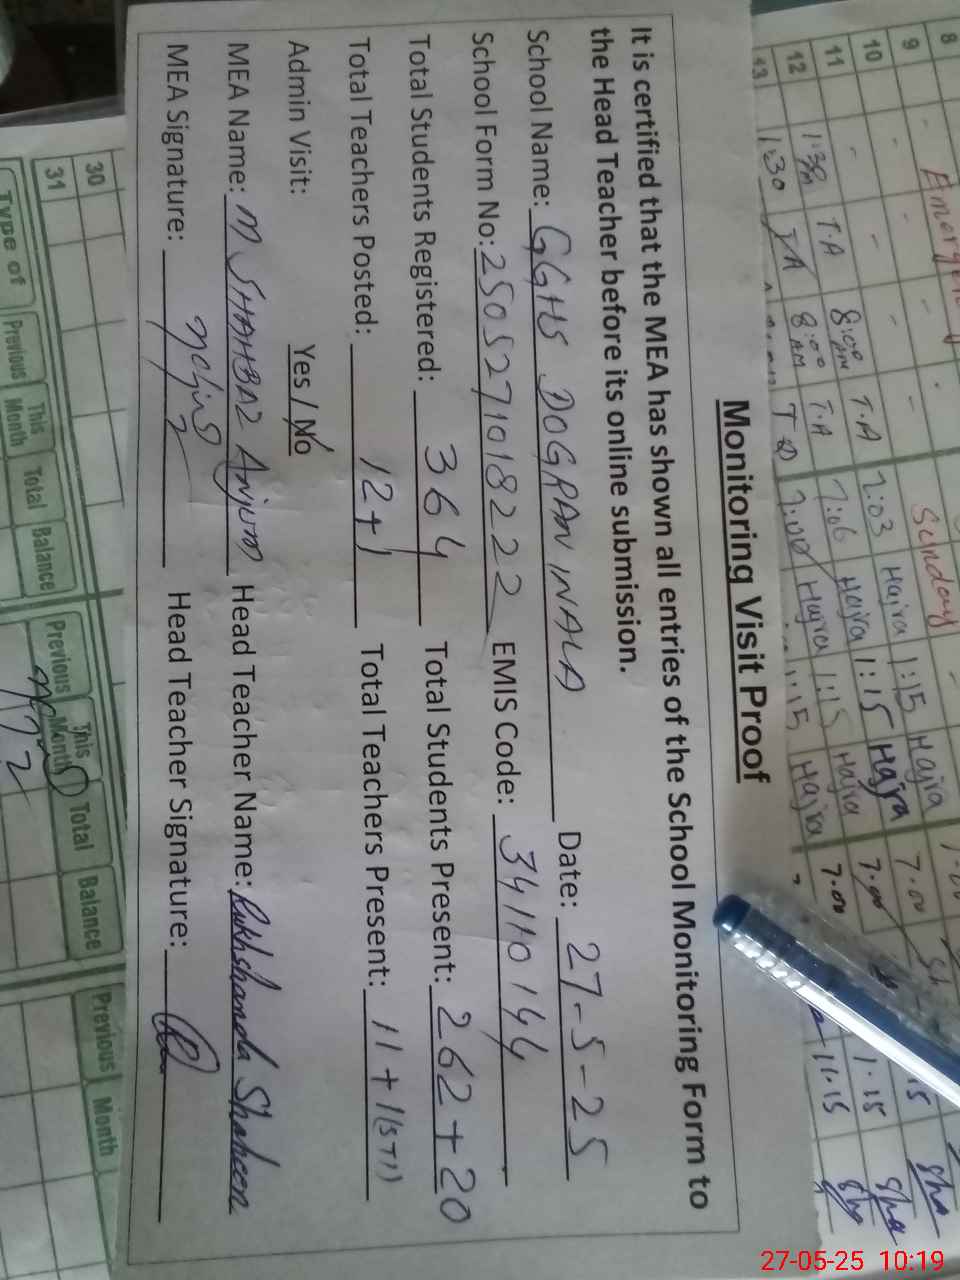 Monitoring Visit Proof
It is certified that the MEA has shown all entries of the School Monitoring Form to
the Head Teacher before its online submission.
School Name: GGHS DOGRAN WALA Date: 27-5-25
School Form No: 2505271018222 EMIS Code: 34110144
Total Students Registered: 364 Total Students Present: 262+20
Total Teachers Posted: 12+1 Total Teachers Present: 11+1(STI)
Admin Visit: Yes / No
MEA Name: M SHAHBAZ Anjum Head Teacher Name: Rukhshanda Shaheen
MEA Signature: Head Teacher Signature:
8
9
Sunday
10 Hajra 1:15 Hajra 7.00
11 8:00 AM T.A 7:03 Hajra 1:15 Hajra 7.00 1.15
12 1:30 PM T.A 8:00 AM T.A 7:06 Hajra 1:15 Hajra 7.00 11.15
13 1:30 7:00 Hajra 1:15 Hajra
30
31
Type of Previous Month This Month Total Balance Previous This Month Total Balance Previous Month
27-05-25 10:19